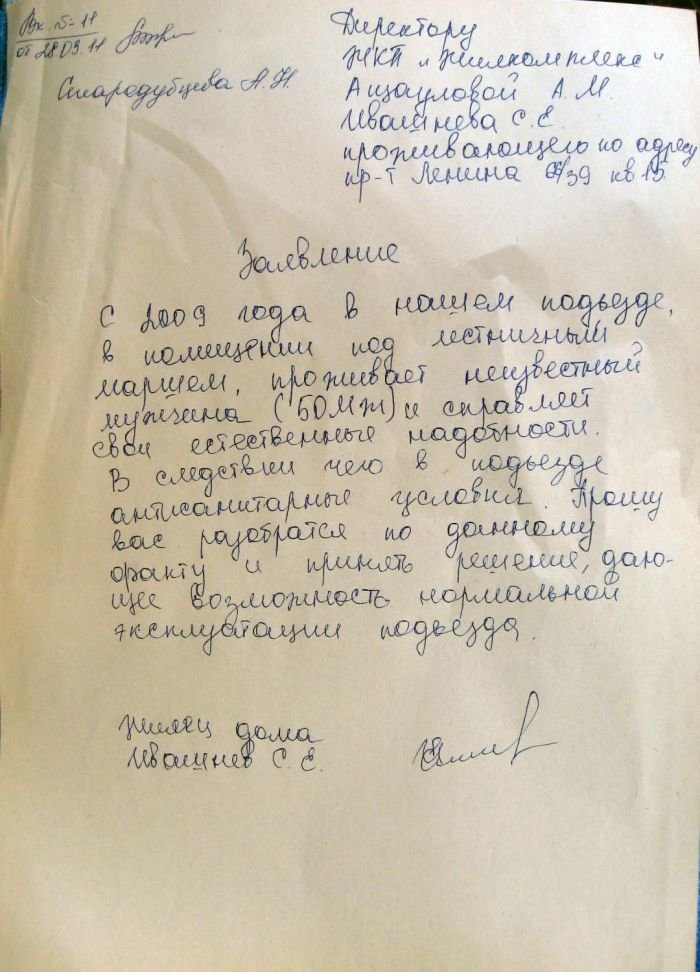 Вх. 5-11
от 28.09.11
Стародубцева А.Н.
Директору
ЖКП „Жилкомплекс“
Ащауловой А.М.
Ивашнева С.Е.
проживающего по адресу
пр-т Ленина /39 кв 15
Заявление
С 2009 года в нашем подьезде,
в помищении под лестничным
маршем, проживает неизвестный
мужчина (БОМЖ) и справляет
свои естественные надобности.
В следствии чего в подьезде
антисанитарные условия. Прошу
вас разобратся по данному
факту и принять решение, даю-
щее возможность нормальной
эксплуатации подьезда.
Жилец дома
Ивашнев С.Е.